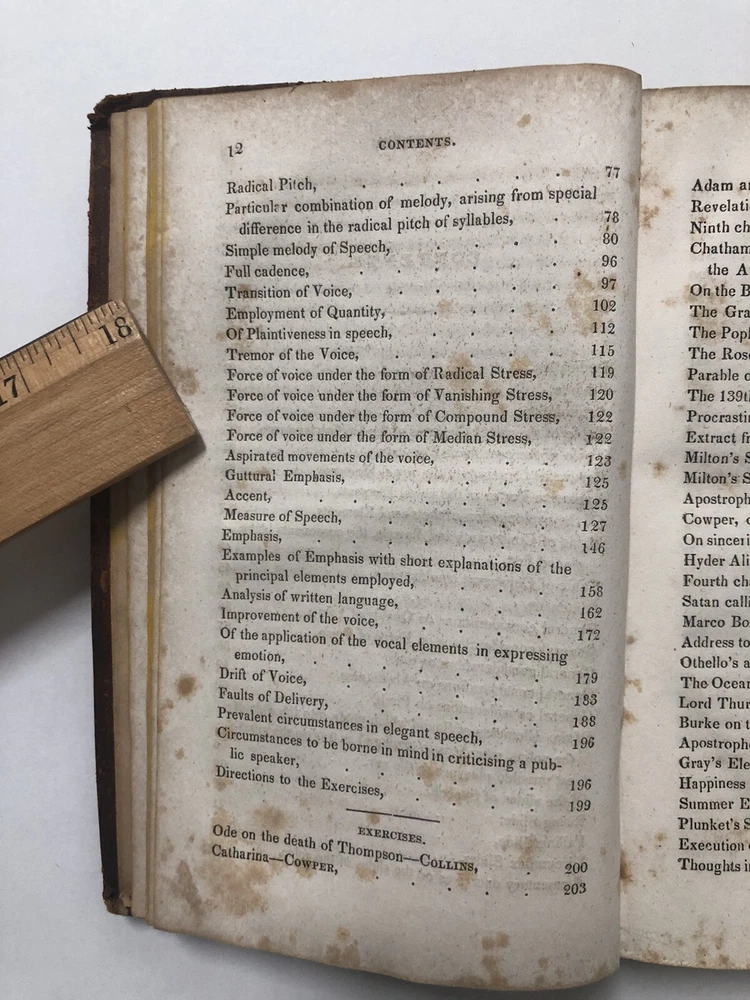 12 CONTENTS.
Radical Pitch, . . . . . . 77
Particular combination of melody, arising from special
difference in the radical pitch of syllables, . 78
Simple melody of Speech, . . . . 80
Full cadence, . . . . . . 96
Transition of Voice, . . . . . 97
Employment of Quantity, . . . . 102
Of Plaintiveness in speech, . . . . 112
Tremor of the Voice, . . . . . 115
Force of voice under the form of Radical Stress, . 119
Force of voice under the form of Vanishing Stress, 120
Force of voice under the form of Compound Stress, 122
Force of voice under the form of Median Stress, . 122
Aspirated movements of the voice, . . . 123
Guttural Emphasis, . . . . . 125
Accent, . . . . . . 125
Measure of Speech, . . . . . 127
Emphasis, . . . . . . 146
Examples of Emphasis with short explanations of the
principal elements employed, . . . 158
Analysis of written language, . . . . 162
Improvement of the voice, . . . . 172
Of the application of the vocal elements in expressing
emotion, . . . . . . 179
Drift of Voice, . . . . . 183
Faults of Delivery, . . . . . 188
Prevalent circumstances in elegant speech, . . 196
Circumstances to be borne in mind in criticising a pub-
lic speaker, . . . . . 196
Directions to the Exercises, . . . . 199
EXERCISES.
Ode on the death of Thompson—COLLINS, . . 200
Catharina—COWPER, . . . . . 203
Adam
Revelati
Ninth ch
Chatham
the A
On the B
The Gra
The Popl
The Rose
Parable
The 139th
Procrasti
Extract
Milton's S
Milton's S
Apostroph
Cowper,
On sinceri
Hyder Ali
Fourth ch
Satan calli
Marco Bo
Address to
Othello's a
The Ocean
Lord Thur
Burke on t
Apostroph
Gray's Ele
Happiness
Summer E
Plunket's S
Execution
Thoughts i
17 18